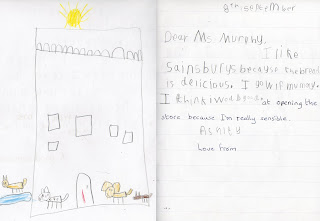 8th september
Dear Ms Murphy.
I like
sainsburys because the bread
is delicious. I go wif mummy.
I think I wod b at opening the
store because I'm really sensible.
Love from